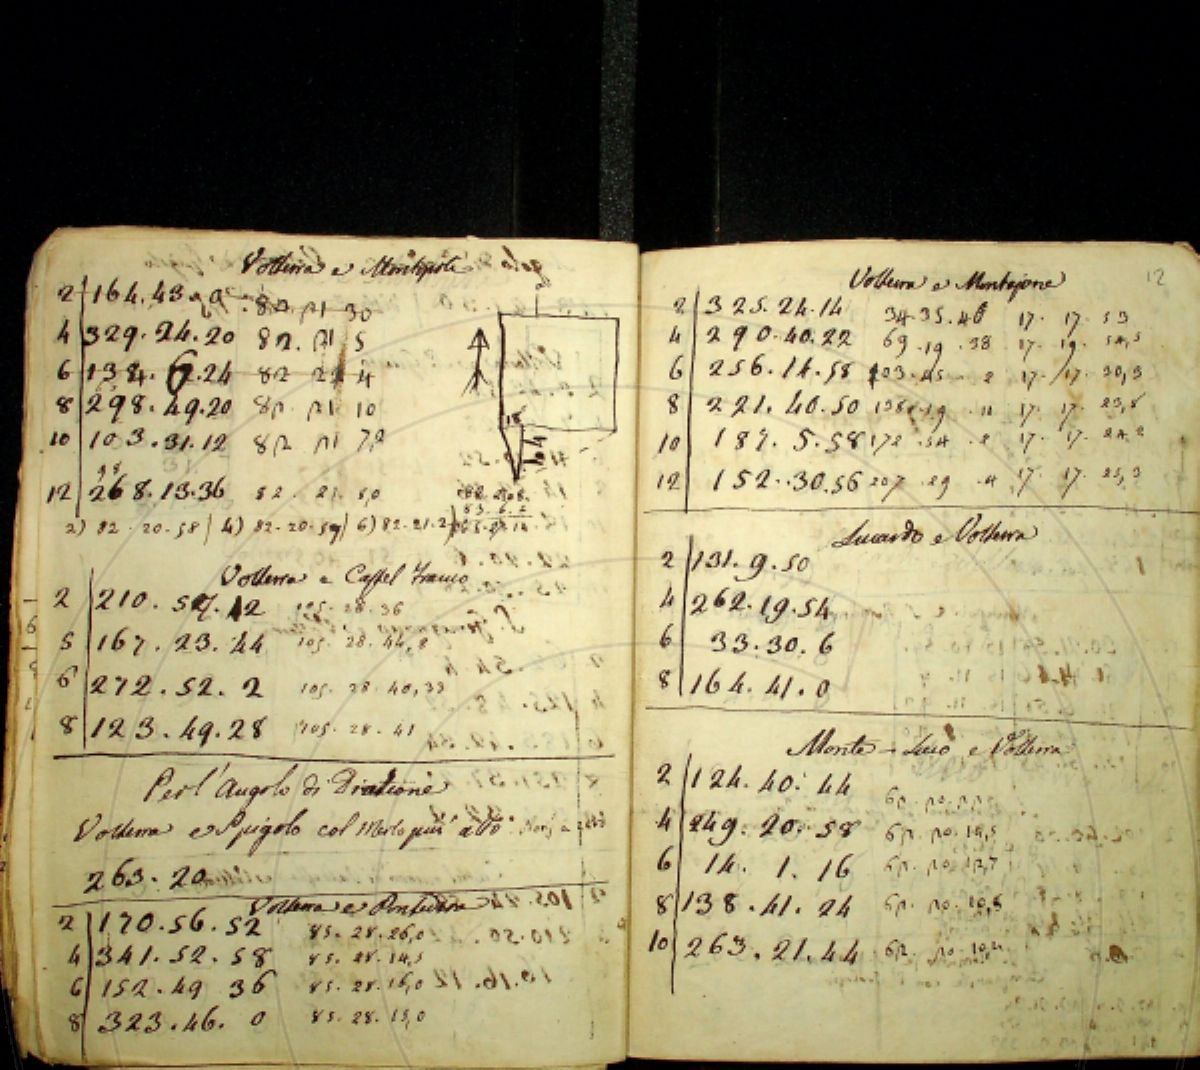 Volterra e Montopoli
2 164.43.
82 21 30
4 329.24.20 82. 21 5
6 134. 6.24 82 21 4
8 298.49.20 82 21 10
10 103.31.12 82 21 7,2
12 268.13.36 82. 21. 8,0
2) 82.20.58 4) 82.20.59 6) 82.21.2
18
64
Volterra e Castel franco
2 210.57.12 105.28.36
5 167.23.44 105.28.44,8
6 272.52.2 105.28.40,33
8 123.49.28 105.28.41
Per l'Angolo di Direzione
Volterra e Spigolo col Merlo piu' alto
263.20
Volterra e Pontedera
2 170.56.52 85.28.26,0
4 341.52.58 85.28.14,5
6 152.49 36 85.28.16,0
8 323.46. 0 85.28.15,0
12
Volterra e Montajone
2 325.24.14 34.35.46 17. 17. 53
4 290.40.22 69.19.38 17. 19. 54,5
6 256.14.58 103.45.2 17. 17. 30,3
8 221.40.50 138.19.11 17. 17. 23,8
10 187.5.58 172.54.2 17. 17. 24,2
12 152.30.56 207.29.4 17. 17. 25,3
Lucardo e Volterra
2 131.9.50
4 262.19.54
6 33.30.6
8 164.41.0
Monte-Luco e Volterra
2 124.40.44
4 249.20.58 62.20.14,5
6 14. 1. 16 62.20.12,7
8 138.41.24 62.20.10,5
10 263.21.44 62.20.10,4